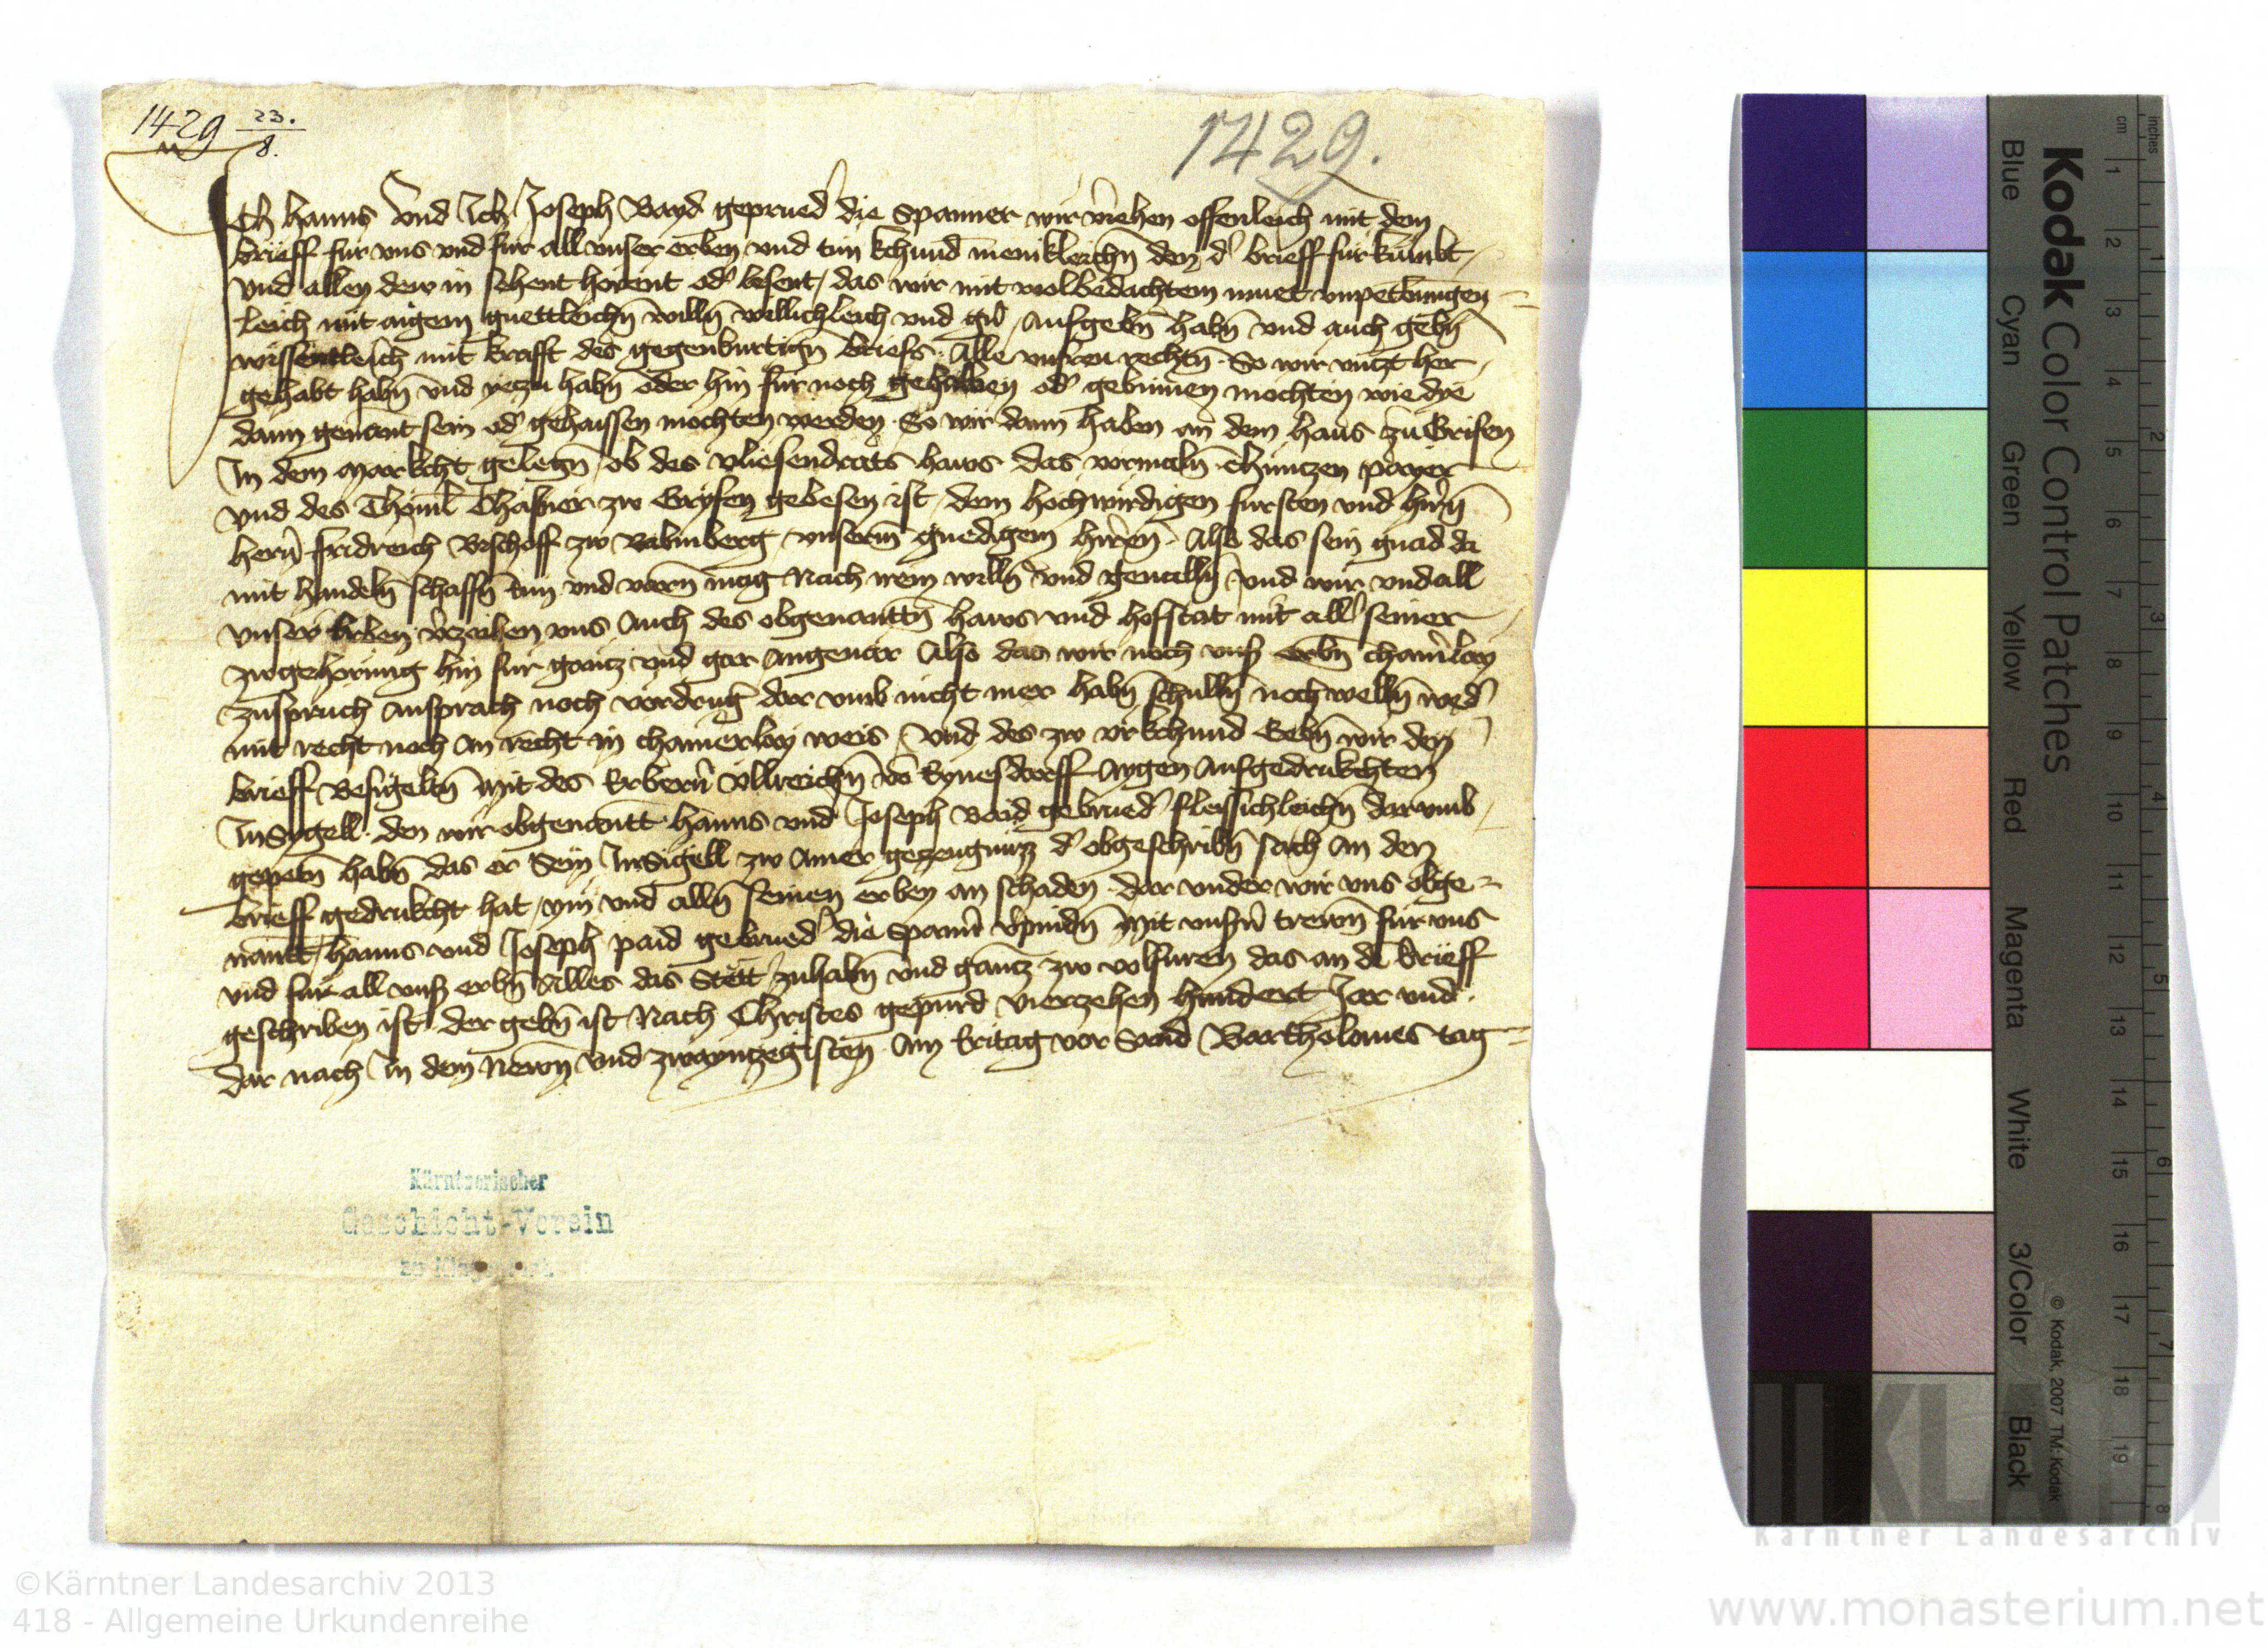 1429 23.
8.
1429.
Ich Hanns Vnd Ich Joseph Bayd geprued die Spanner wir v̾iehen offenleich mit dem
brieff fur vns vnd fur all vnser erben vnd tun kchund menikleichn̄ den d' brieff furkumbt
vnd allen dew in sehent hörent od' lesent, das wir mit wolbedachtem muet vnpetbungen=
leich mit aigem guettleichn̄ willn̄ willichleich vnd gar Aufgebn̄ habn̄ vnd auch gebn̄
wissentleich mit krafft des gegenburtign̄ briefs. Alle vnsreu rechtn̄. So wir vntzt her
gehabt habn̄ vnd yeczu habn̄ oder hin fur noch gehaben od' gebinnen mochten wie die
dann genant sein od' gehaissen mochten werden. So wir dann haben an dem haus zu Grifen
In dem Markcht gelegn̄ ob des haws das vormaln̄ Chuntzen payer
vnd des zw Gryfen gebesen ist, dem hochwirdigen fursten vnd h'rn̄
hern̄ fridreich Bischoff zw Babmberg, vnserm gnedigem h'ren̄. Also das sein gnad da
mit handeln̄ schaffn̄ tun vnd mag Nach irem willn̄ vnd geuelln̄ vnd wir vnd all
vnser Erben v̾czeihen vns Auch des obgenanttn̄ haws vnd hofstat mit all' seiner
zwgehorung hin fur gantz vnd gar Also das wir noch vns' erbn̄ cham'lay
zuspruch Ansprach noch vordrug dar vmb nicht mer habn̄ schulln̄ noch welln̄ wed'
mit recht noch an recht in chainerlay weis, Vnd des zw vrkchund Gebn̄ wir den
brieff Besigeltn̄ Mit des Erbern̄ Vllreichn̄ vo Aygen Aufgedrukchten
InSygell. den wir obgenantt Hanns vnd Joseph Baid gebrued' fleissichleichn̄ darvmb
gepetn̄ habn̄ das er Sein InSigell zw ainer gezeugnuzz d' obgeschribn̄ sach An den
brieff gedrukcht hat, im vnd alln̄ seinen erben an schaden. dar vnder wir vns obge=
nantt, Hanns vnd Joseph paid gebrued' die Span̄r v̾pindn̄ Mit vnsn̄ trewn̄ fur vns
vnd fur all vns' erbn̄ Alles das Stett zuhabn̄ vnd gantz zw volfuren das an de brieff
geschriben ist. der gebn̄ ist Nach Christes gepurd vierzehen hundert Jar vnd.
dar nach In dem Newn̄ vnd zwaintzegisten Am Eritag vor Sand Bartholomes tag=
Kärntnerischer
Geschicht-Verein
zu Klagenfurt.
Kodak Color Control Patches
Blue Cyan Green Yellow Red Magenta White 3/Color Black
© Kodak, 2007 TM: Kodak
inches 1 2 3 4 5 6 7 8
cm 1 2 3 4 5 6 7 8 9 10 11 12 13 14 15 16 17 18 19
KLA
Kärntner Landesarchiv
©Kärntner Landesarchiv 2013
418 - Allgemeine Urkundenreihe
www.monasterium.net